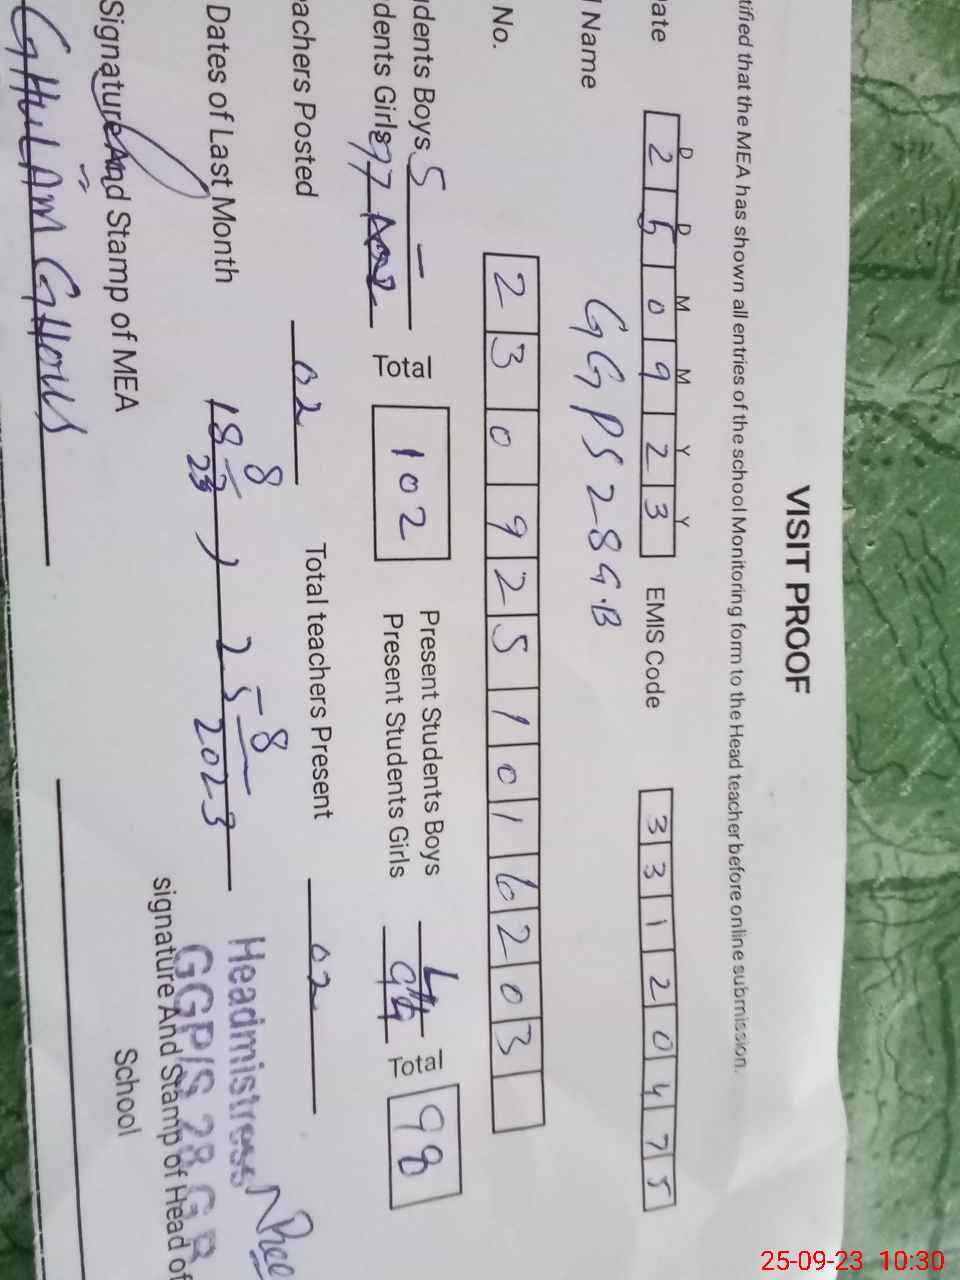 VISIT PROOF
tified that the MEA has shown all entries of the school Monitoring form to the Head teacher before online submission.
D D M M Y Y
ate 2 5 0 9 2 3 EMIS Code 3 3 1 2 0 4 7 5
Name GGPS 28G.B
No. 2 3 0 9 2 5 1 0 1 6 2 0 3
dents Boys 5 Total 102 Present Students Boys 4 Total 98
dents Girls 97 Present Students Girls 94
achers Posted 02 Total teachers Present 02
Dates of Last Month 18 8 23 , 25 8 2023
Headmistress
GGP/S 28 G B
Signature And Stamp of MEA signature And Stamp of Head of
School
GHULAM GHOUS
25-09-23 10:30